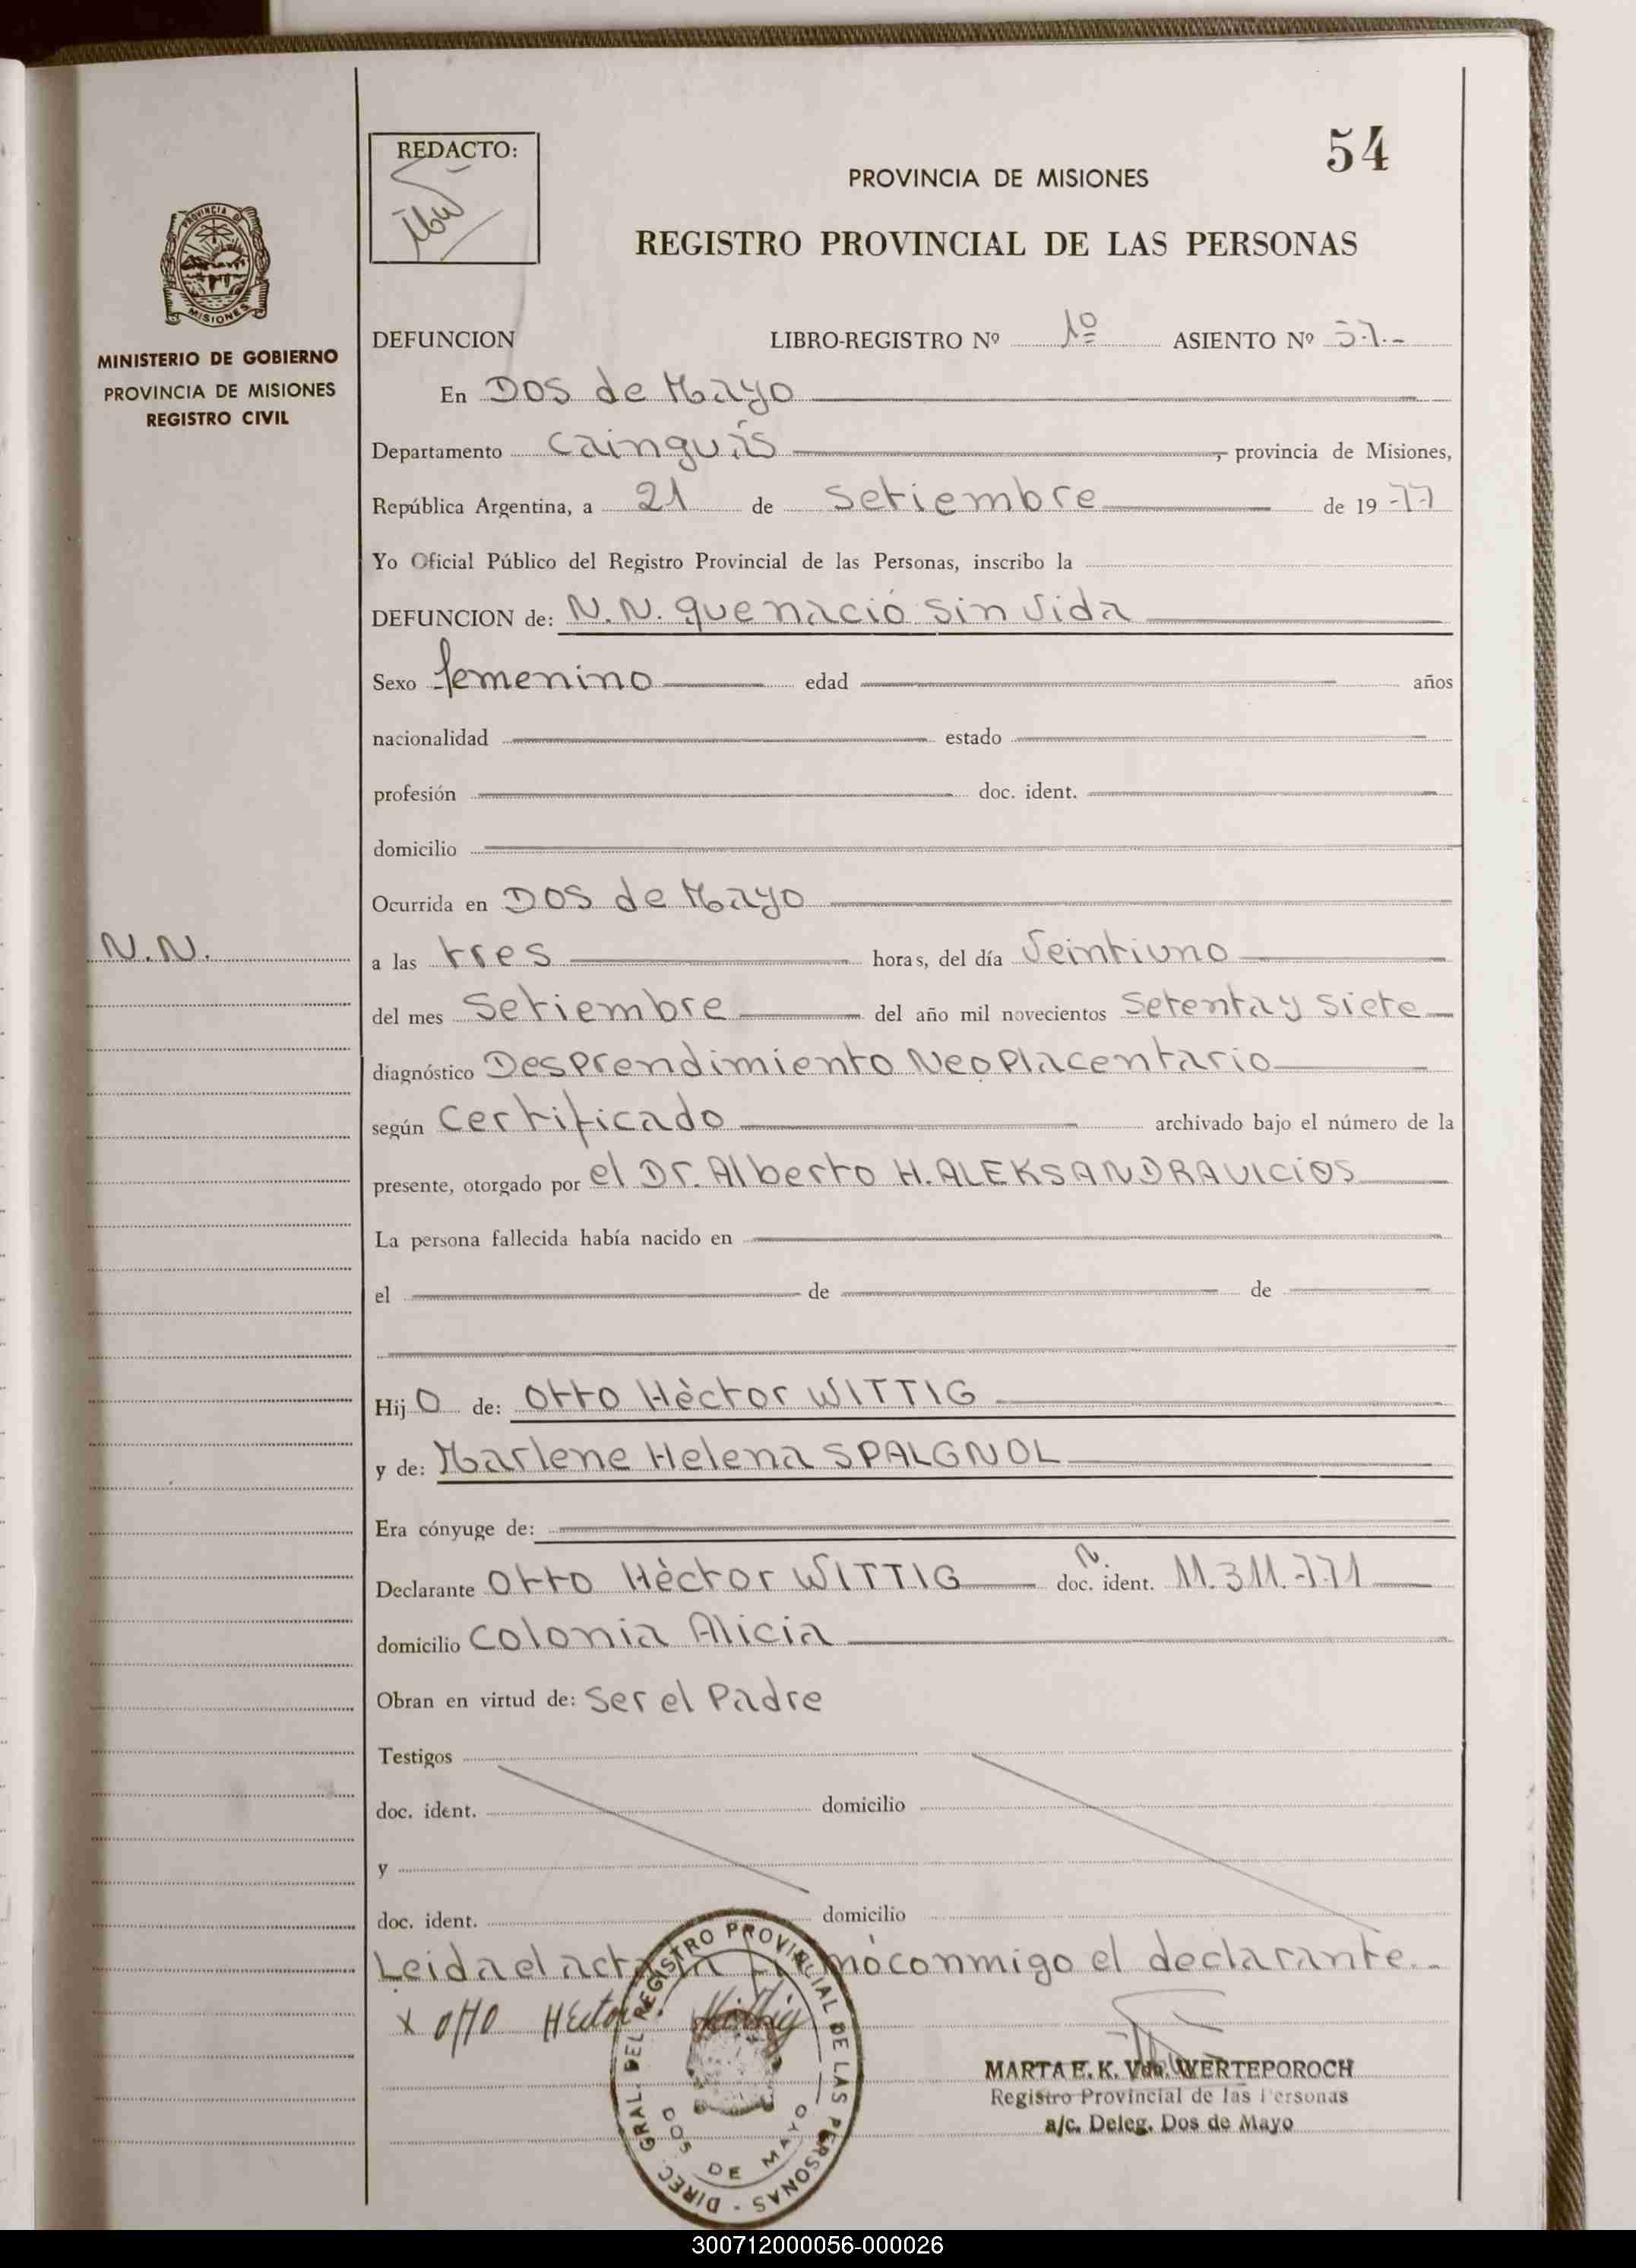 54
REDACTO:
PROVINCIA DE MISIONES
REGISTRO PROVINCIAL DE LAS PERSONAS
PROVINCIA DE
MISIONES
MINISTERIO DE GOBIERNO
PROVINCIA DE MISIONES
REGISTRO CIVIL
DEFUNCION LIBRO-REGISTRO Nº 1º ASIENTO Nº 57.-
En Dos de Mayo
Departamento Cainguás, provincia de Misiones,
República Argentina, a 21 de Setiembre de 19 77
Yo Oficial Público del Registro Provincial de las Personas, inscribo la
DEFUNCION de: N.N. que nació sin vida
Sexo femenino edad años
nacionalidad estado
profesión doc. ident.
domicilio
Ocurrida en Dos de Mayo
N.N.
a las tres horas, del día Veintiuno
del mes Setiembre del año mil novecientos Setenta y siete
diagnóstico Desprendimiento Neoplacentario
según Certificado archivado bajo el número de la
presente, otorgado por el Dr. Alberto H. ALEKSANDRAVICIOS
La persona fallecida había nacido en
el de de
Hij O de: Otto Hèctor WITTIG
y de: Marlene Helena SPALGNOL
Era cónyuge de:
Declarante Otto Hèctor WITTIG doc. N. ident. 11.311.771
domicilio Colonia Alicia
Obran en virtud de: Ser el Padre
Testigos
doc. ident. domicilio
y
doc. ident. domicilio
Leida el acta la firmó conmigo el declarante.-
x Otto Hector Wittig
DIREC. GRAL. DEL REGISTRO PROVINCIAL DE LAS PERSONAS -
DOS DE MAYO
MARTA E. K. Vda. WERTEPOROCH
Registro Provincial de las Personas
a/c. Deleg. Dos de Mayo
300712000056-000026